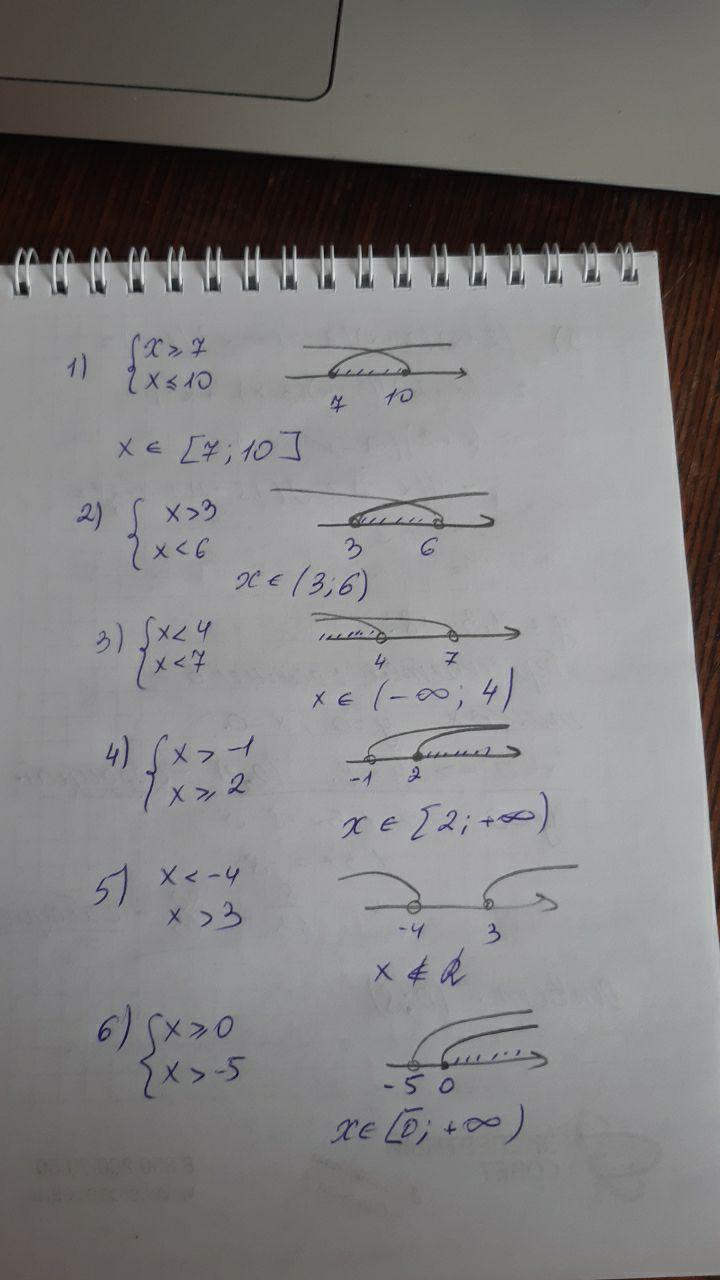 1) { x ⩾ 7
x ⩽ 10
7 10
x ∈ [7; 10]
2) { x > 3
x < 6
3 6
x ∈ (3; 6)
3) { x < 4
x < 7
4 7
x ∈ (-∞; 4)
4) { x > -1
x ⩾ 2
-1 2
x ∈ [2; +∞)
5) x < -4
x > 3
-4 3
x ∉
6) { x ⩾ 0
x > -5
-5 0
x ∈ [0; +∞)